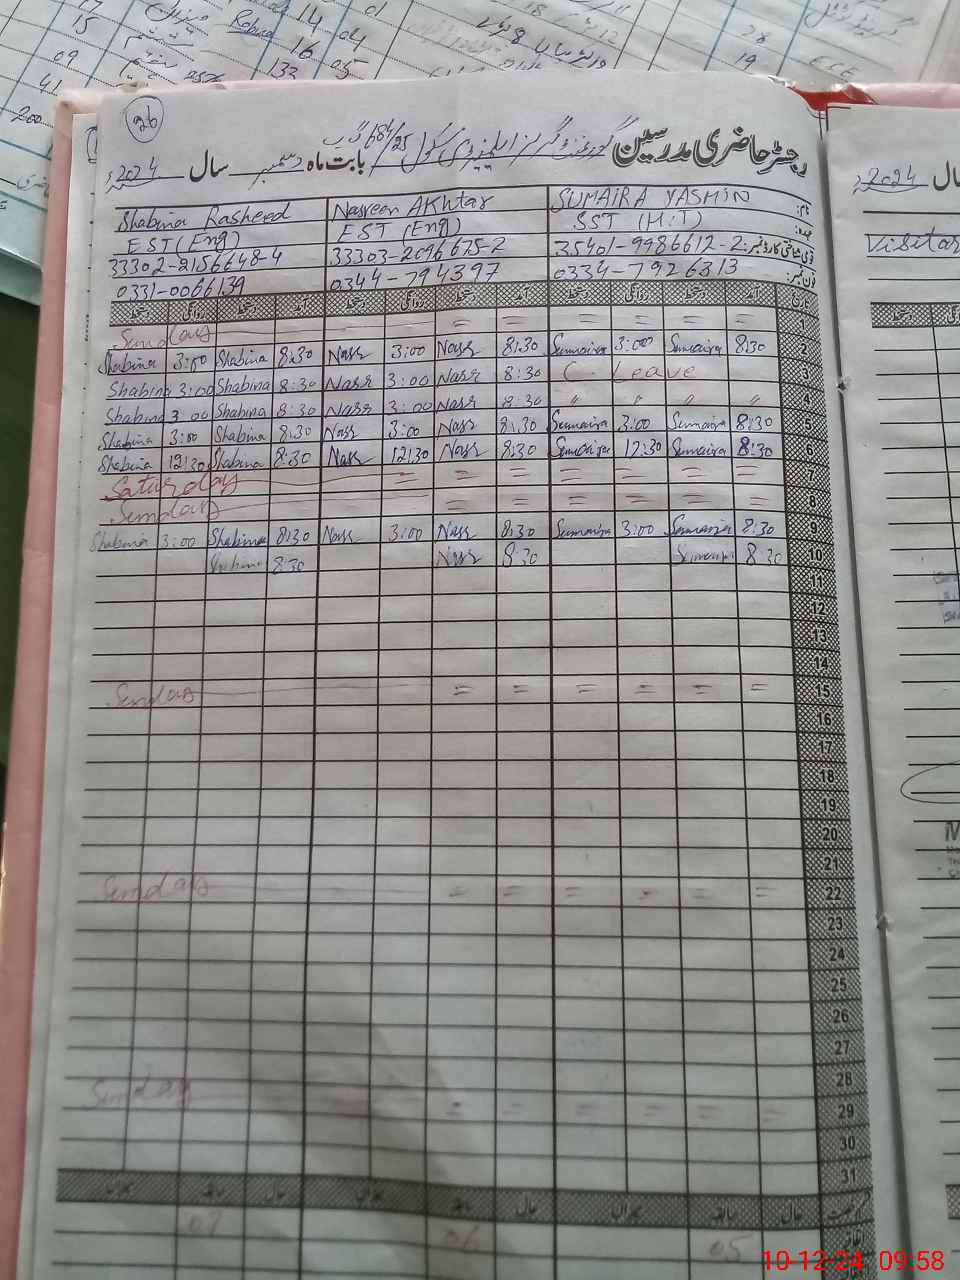 26
رجسٹر حاضری مدرسین گورنمنٹ گرلز ایلیمنٹری سکول 684/25 گ ب بابت ماہ دسمبر سال 2024ء
نام: SUMAIRA YASMIN Nasreen AKhtar Shabina Rasheed
عہدہ: SST (M.T) EST (Eng) EST (Eng)
قومی شناختی کارڈ نمبر: 35401-9986612-2 33303-2096675-2 33302-2156648-4
فون نمبر: 0334-7926313 0344-794397 0331-0066139
تاریخ آمد دستخط روانگی دستخط آمد دستخط روانگی دستخط آمد دستخط روانگی دستخط
Sunday = = = = = = 1
Shabina 3:00 Shabina 8:30 Nasr 3:00 Nasr 8:30 Sumaira 3:00 Sumaira 8:30 2
Shabina 3:00 Shabina 8:30 Nasr 3:00 Nasr 8:30 C. Leave 3
Shabina 3:00 Shabina 8:30 Nasr 3:00 Nasr 8:30 " " " " 4
Shabina 3:00 Shabina 8:30 Nasr 3:00 Nasr 8:30 Sumaira 3:00 Sumaira 8:30 5
Shabina 12:30 Shabina 8:30 Nasr 12:30 Nasr 8:30 Sumaira 12:30 Sumaira 8:30 6
Saturday = = = = = = = 7
Sunday = = = = = = 8
Shabina 3:00 Shabina 8:30 Nasr 3:00 Nasr 8:30 Sumaira 3:00 Sumaira 8:30 9
Shabina 8:30 Nasr 8:30 Sumaira 8:30 10
11
12
13
14
Sunday = = = = = = 15
16
17
18
19
20
21
Sunday = = = = = = 22
23
24
25
26
27
28
Sunday = = = = = = 29
30
31
حال سابقہ میزان حال سابقہ میزان حال سابقہ میزان
07 06 05
2024ء
سال
Visitor
15
09
41
200
Robina
14
01
16
04
132
05
18
28
19
ECE
10-12-24 09:58